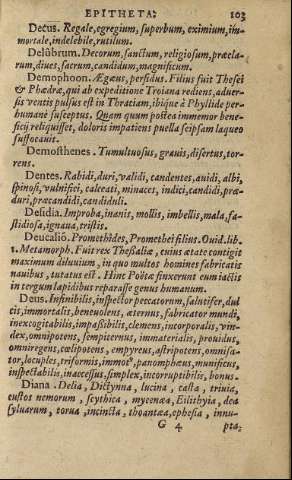 EPITHETA. 103
Decus. Regale, egregium, superbum, eximium, im-
mortale, indelebile, rutilum.
Delûbrum. Decorum, sanctum, religiosum, præcla-
rum, diues, sacrum, candidum, magnificum.
Demophoon. Ægæus, perfidus. Filius fuit Thesei
& Phædræ, qui ab expeditione Troiana rediens, aduer-
sis ventis pulsus est in Thratiam, ibique à Phyllide per-
humanè susceptus. Quam quum postea immemor bene-
ficij reliquisset, doloris impatiens puella seipsam laqueo
suffocauit.
Demosthenes. Tumultuosus, grauis, disertus, tor-
rens.
Dentes. Rabidi, duri, validi, candentes, auidi, albi,
spinosi, vulnifici, calcati, minaces, indici, candidi, præ-
duri, præcandidi, candiduli.
Desidia. Improba, inanis, mollis, imbellis, mala, fa-
stidiosa, ignaua, tristis.
Deucaliō. Promethides, Promethei filius. Ouid. lib.
1. Metamorph. Fuit rex Thessaliæ, cuius ætate contigit
maximum diluuium, in quo multos homines fabricatis
nauibus, tutatus est. Hinc Poëtæ finxerunt eum iactis
in tergum lapidibus reparasse genus humanum.
Deus. Infinibilis, inspector peccatorum, salutifer, dul
cis, immortalis, beneuolens, æternus, fabricator mundi,
inexcogitabilis, impassibilis, clemens, incorporalis, vin-
dex, omnipotens, sempiternus, immaterialis, prouidus,
omniregens, cœlipotens, empyreus, astripotens, omnisa-
tor, locuples, triformis, immotꝰ, panomphæus, munificus,
inspectabilis, inaccessus, simplex, incorruptibilis, bonus.
Diana. Delia, Dictynna, lucina, casta, triuia,
custos nemorum, scythica, mycenæa, Eilithyia, dea
syluarum, torua, incincta, thoantæa, ephesia, innu-
G 4 pta,